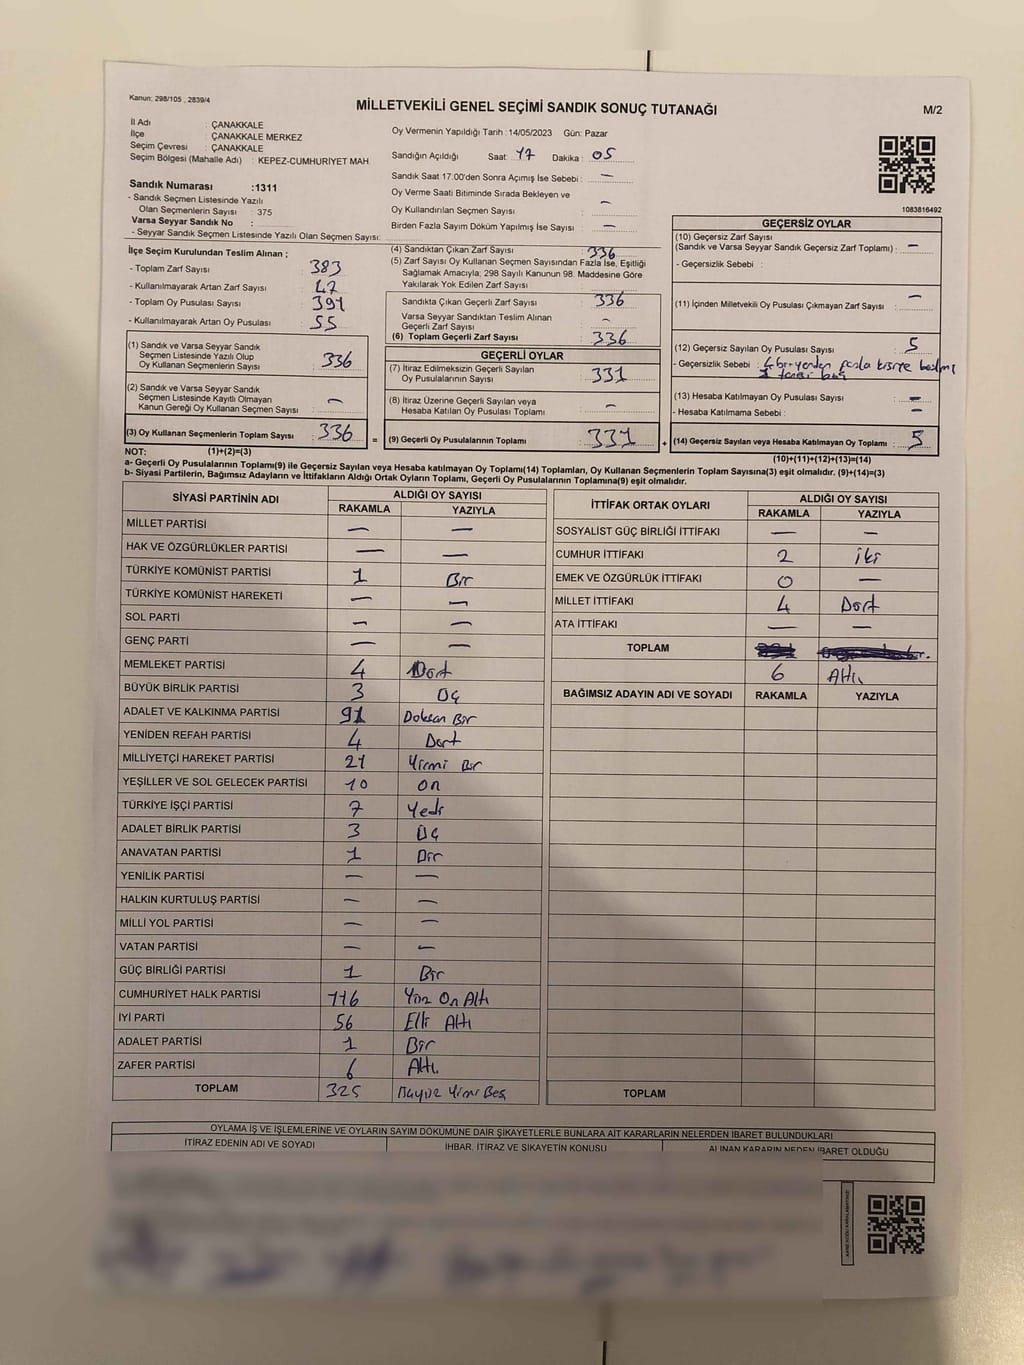 Kanun: 298/105 , 2839/4
MİLLETVEKİLİ GENEL SEÇİMİ SANDIK SONUÇ TUTANAĞI
M/2
İl Adı : ÇANAKKALE
İlçe : ÇANAKKALE MERKEZ
Seçim Çevresi : ÇANAKKALE
Seçim Bölgesi (Mahalle Adı) : KEPEZ-CUMHURİYET MAH
Sandık Numarası :1311
- Sandık Seçmen Listesinde Yazılı
Olan Seçmenlerin Sayısı : 375
Varsa Seyyar Sandık No :
- Seyyar Sandık Seçmen Listesinde Yazılı Olan Seçmen Sayısı:
Oy Vermenin Yapıldığı Tarih : 14/05/2023 Gün: Pazar
Sandığın Açıldığı Saat: 17 Dakika : 05
Sandık Saat 17:00'den Sonra Açımış İse Sebebi : —
Oy Verme Saati Bitiminde Sırada Bekleyen ve
Oy Kullandırılan Seçmen Sayısı : —
Birden Fazla Sayım Döküm Yapılmış İse Sayısı : —
1083816492
İlçe Seçim Kurulundan Teslim Alınan ;
- Toplam Zarf Sayısı : 383
- Kullanılmayarak Artan Zarf Sayısı : 47
- Toplam Oy Pusulası Sayısı : 391
- Kullanılmayarak Artan Oy Pusulası : 55
(1) Sandık ve Varsa Seyyar Sandık
Seçmen Listesinde Yazılı Olup
Oy Kullanan Seçmenlerin Sayısı : 336
(2) Sandık ve Varsa Seyyar Sandık
Seçmen Listesinde Kayıtlı Olmayan
Kanun Gereği Oy Kullanan Seçmen Sayısı : —
(3) Oy Kullanan Seçmenlerin Toplam Sayısı : 336
(1)+(2)=(3)
(4) Sandıktan Çıkan Zarf Sayısı : 336
(5) Zarf Sayısı Oy Kullanan Seçmen Sayısından Fazla İse, Eşitliği
Sağlamak Amacıyla; 298 Sayılı Kanunun 98. Maddesine Göre
Yakılarak Yok Edilen Zarf Sayısı :
Sandıkta Çıkan Geçerli Zarf Sayısı : 336
Varsa Seyyar Sandıktan Teslim Alınan
Geçerli Zarf Sayısı : —
(6) Toplam Geçerli Zarf Sayısı : 336
GEÇERLİ OYLAR
(7) İtiraz Edilmeksizin Geçerli Sayılan
Oy Pusulalarının Sayısı : 331
(8) İtiraz Üzerine Geçerli Sayılan veya
Hesaba Katılan Oy Pusulası Toplamı : —
= (9) Geçerli Oy Pusulalarının Toplamı : 331 +
GEÇERSİZ OYLAR
(10) Geçersiz Zarf Sayısı
(Sandık ve Varsa Seyyar Sandık Geçersiz Zarf Toplamı) : —
- Geçersizlik Sebebi :
(11) İçinden Milletvekili Oy Pusulası Çıkmayan Zarf Sayısı : —
(12) Geçersiz Sayılan Oy Pusulası Sayısı : 5
- Geçersizlik Sebebi : 4 birden fazla
1
(13) Hesaba Katılmayan Oy Pusulası Sayısı : —
- Hesaba Katılmama Sebebi : —
(14) Geçersiz Sayılan veya Hesaba Katılmayan Oy Toplamı : 5
(10)+(11)+(12)+(13)=(14)
NOT:
a- Geçerli Oy Pusulalarının Toplamı(9) ile Geçersiz Sayılan veya Hesaba katılmayan Oy Toplamı(14) Toplamları, Oy Kullanan Seçmenlerin Toplam Sayısına(3) eşit olmalıdır. (9)+(14)=(3)
b- Siyasi Partilerin, Bağımsız Adayların ve İttifakların Aldığı Ortak Oyların Toplamı, Geçerli Oy Pusulalarının Toplamına(9) eşit olmalıdır.
SİYASİ PARTİNİN ADI
ALDIĞI OY SAYISI
RAKAMLA YAZIYLA
MİLLET PARTİSİ — —
HAK VE ÖZGÜRLÜKLER PARTİSİ — —
TÜRKİYE KOMÜNİST PARTİSİ 1 Bir
TÜRKİYE KOMÜNİST HAREKETİ — —
SOL PARTİ — —
GENÇ PARTİ — —
MEMLEKET PARTİSİ 4 Dört
BÜYÜK BİRLİK PARTİSİ 3 Üç
ADALET VE KALKINMA PARTİSİ 91 Doksan Bir
YENİDEN REFAH PARTİSİ 4 Dort
MİLLİYETÇİ HAREKET PARTİSİ 21 Yirmi Bir
YEŞİLLER VE SOL GELECEK PARTİSİ 10 On
TÜRKİYE İŞÇİ PARTİSİ 7 Yedi
ADALET BİRLİK PARTİSİ 3 Üç
ANAVATAN PARTİSİ 1 Bir
YENİLİK PARTİSİ — —
HALKIN KURTULUŞ PARTİSİ — —
MİLLİ YOL PARTİSİ — —
VATAN PARTİSİ — —
GÜÇ BİRLİĞİ PARTİSİ 1 Bir
CUMHURİYET HALK PARTİSİ 116 Yüz On Altı
İYİ PARTİ 56 Elli Altı
ADALET PARTİSİ 1 Bir
ZAFER PARTİSİ 6 Altı.
TOPLAM 325 Yirmi Beş
İTTİFAK ORTAK OYLARI
ALDIĞI OY SAYISI
RAKAMLA YAZIYLA
SOSYALİST GÜÇ BİRLİĞİ İTTİFAKI — —
CUMHUR İTTİFAKI 2 iki
EMEK VE ÖZGÜRLÜK İTTİFAKI 0 —
MİLLET İTTİFAKI 4 Dort
ATA İTTİFAKI — —
TOPLAM
6 Altı.
BAĞIMSIZ ADAYIN ADI VE SOYADI RAKAMLA YAZIYLA
TOPLAM
OYLAMA İŞ VE İŞLEMLERİNE VE OYLARIN SAYIM DÖKÜMÜNE DAİR ŞİKAYETLERLE BUNLARA AİT KARARLARIN NELERDEN İBARET BULUNDUKLARI
İTİRAZ EDENİN ADI VE SOYADI
İHBAR, İTİRAZ VE ŞİKAYETİN KONUSU
ALINAN KARARIN NEDEN İBARET OLDUĞU